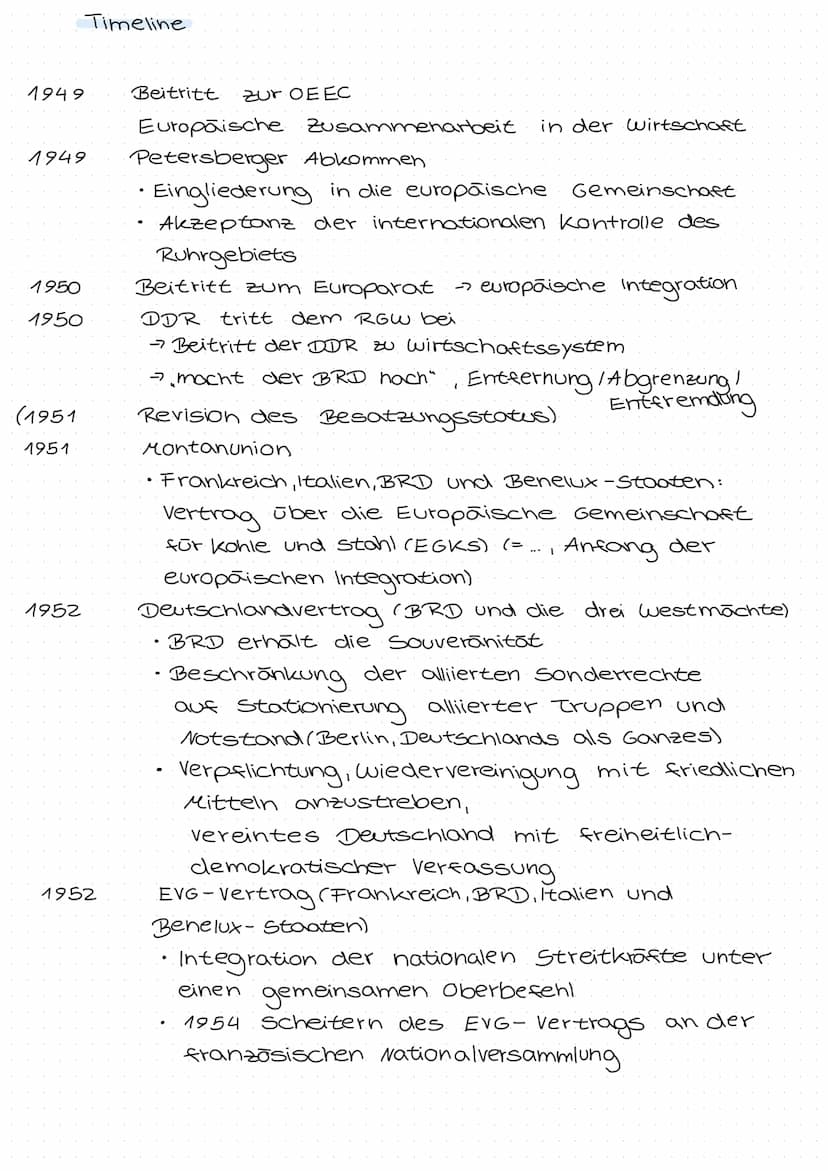 Timeline
1949 Beitritt zur OEEC
Europäische Zusammenarbeit in der Wirtschaft
1949 Petersberger Abkommen
• Eingliederung in die europäische Gemeinschaft
• Akzeptanz der internationalen Kontrolle des
Ruhrgebiets
1950 Beitritt zum Europarat → europäische Integration
1950 DDR tritt dem RGW bei
→ Beitritt der DDR zu Wirtschaftssystem
→ „macht der BRD nach“, Entfernung/Abgrenzung/
Entfremdung
(1951 Revision des Besatzungsstatus)
1951 Montanunion
• Frankreich, Italien, BRD und Benelux-Staaten:
Vertrag über die Europäische Gemeinschaft
für Kohle und Stahl (EGKS) (= ..., Anfang der
europäischen Integration)
1952 Deutschlandvertrag (BRD und die drei Westmächte)
• BRD erhält die Souveränität
• Beschränkung der alliierten Sonderrechte
auf Stationierung alliierter Truppen und
Notstand (Berlin, Deutschlands als Ganzes)
• Verpflichtung, Wiedervereinigung mit friedlichen
Mitteln anzustreben,
vereintes Deutschland mit freiheitlich-
demokratischer Verfassung
1952 EVG-Vertrag (Frankreich, BRD, Italien und
Benelux-Staaten)
• Integration der nationalen Streitkräfte unter
einen gemeinsamen Oberbefehl
• 1954 Scheitern des EVG-Vertrags an der
französischen Nationalversammlung